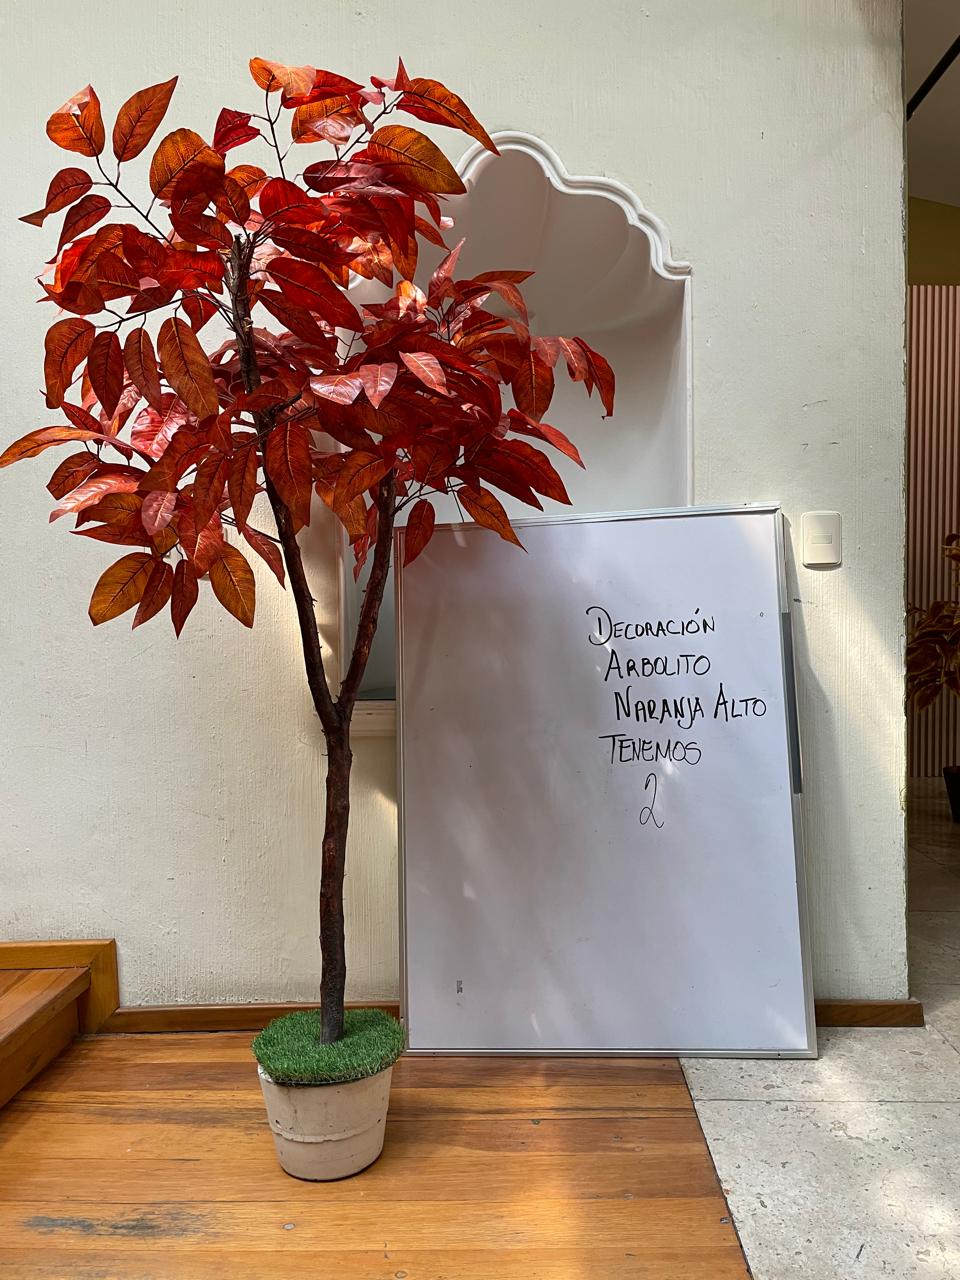 DECORACIÓN
ARBOLITO
NARANJA ALTO
TENEMOS
2